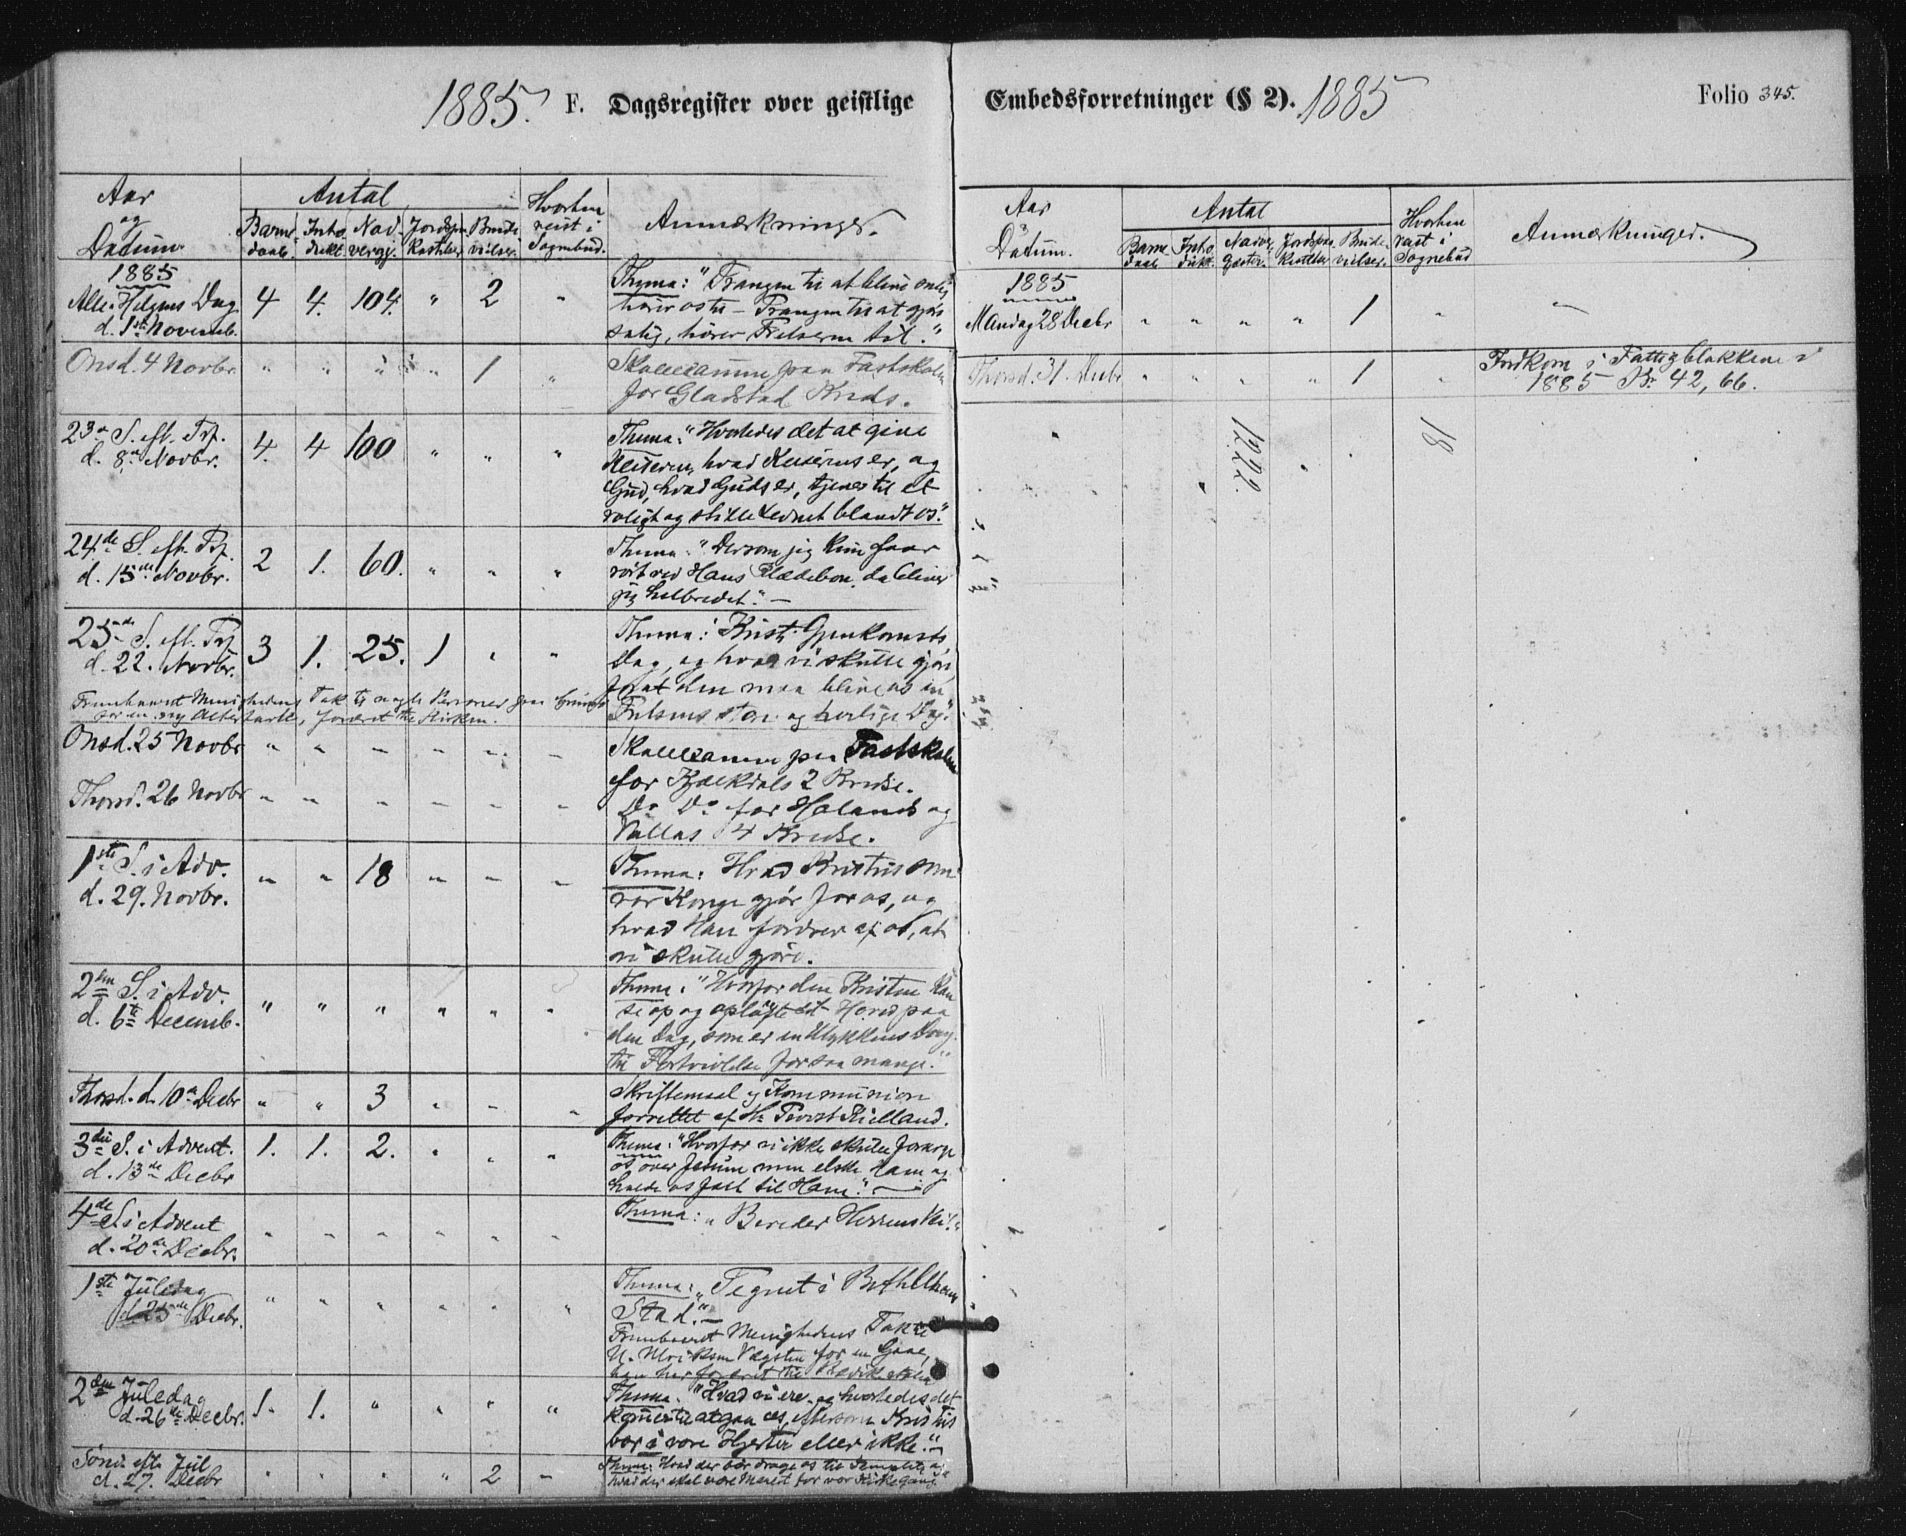 1885. F. Dagsregister over geistlige
Aar og Datum
Antal
Barne daab. Intro dukt. Nad vergj. Jordspaa kastelser Brude vielser.
Hvorhen reist i Sognebud.
Anmærkninger.
1885
Alle Helgens Dag d. 1ste Novemb. 4 4. 104. " 2 "
Thema: "Trangen til at blive salig
hører os til – Trangen til at gjøre
salig, hører Frelseren til."
Onsd. 4 Novbr. " " " " 1 "
Skoleexamen paa Fastskolen
for Gladstad Kreds.
23de S. eft. Trf. d. 8de Novbr. 4. 4 100 " " "
Thema: "Hvorledes det at give
Keiseren, hvad Keiserens er, og
Gud, hvad Guds er, tjener til et
roligt og stille Levnet blandt os."
24de S. eft. Trf. d. 15de Novbr. 2 1. 60. " " "
Thema: "Dersom jeg kun faar
rørt ved Hans Klædebon, da bliver
jeg helbredet." –
25de S. eft. Trf. d. 22. Novbr. 3 1. 25. 1 " "
Thema: Kristi Gjenkomsts
Dag, og hvad vi skulle gjøre
for at den maa blive os en
Frelsens stor og herlige Dag."
Frembaaret Menighedens Tak til nogle Personer paa
for en ny Altertavle, foræret til Kirken.
Onsd. 25 Novbr " " – – – –
Skoleexamen paa Fastskolen
for Kjælkdals 2 Kredse.
Thorsd. 26 Novbr " " – – – –
Do Do for Holands og
Vallas 4 Kredse.
1ste S. i Adv. d. 29. Novbr. " " 18 " – –
Thema: Hvad Kristus som
vor Konge gjør for os, og
hvad Han fordrer af os, at
vi skulle gjøre.
2den S. i Adv. d. 6te Decemb. " " " " " "
Thema: "Hvorfor den Kristne kan
se op og opløfte sit Hoved paa
den Dag, som er en Ulykkens Dag
til Fortvivlelse for saa mange."
Thorsd. d. 10de Decbr " " 3 " – "
Skriftemaal og Kommunion
forrettet af Hr. Provst Kielland.
3die S. i Advent. d. 13de Decbr 1. 1. 2. " " "
Thema: "Hvorfor vi ikke skulle forarge
os over Jesum men elske Ham og
holde os fast til Ham." –
4de S. i Advent d. 20de Decbr. " " " " " "
Thema: "Bereder Herrens Vei."
1ste Juledag d. 25de Decbr. " " " " " "
Thema: "Tegnet i Bethlehem
Stad." –
Frembaaret Menighedens Tak til
for en Gave,
han har foræret til
2den Juledag d. 26de Decbr. 1. 1. " " " "
Thema: "Hvad vi ere og hvorledes det
kommer til at gaa os, eftersom Kristus
bor i vore Hjerter eller ikke." –
Sønd. eft. Jul d. 27. Decbr " " " " 2 –
Thema: Hvad der bør drage os til Templet, og
hvad der skal være Maalet for vor Kirkegang
Embedsforretninger (§ 2). 1885 Folio 345.
Aar og Datum.
Antal
Barne daab Intro dukt. Nadv. Gæster. Jordspaa kastelser Brude vielser.
Hvorhen reist i Sognebud
Anmærkninger.
1885
Mandag 28 Decbr " " " " 1 " –
Thorsd. 31. Decbr " " " " 1 "
Indkom i Fattigblokkene i
1885 Kr 42,66.
1222.
18